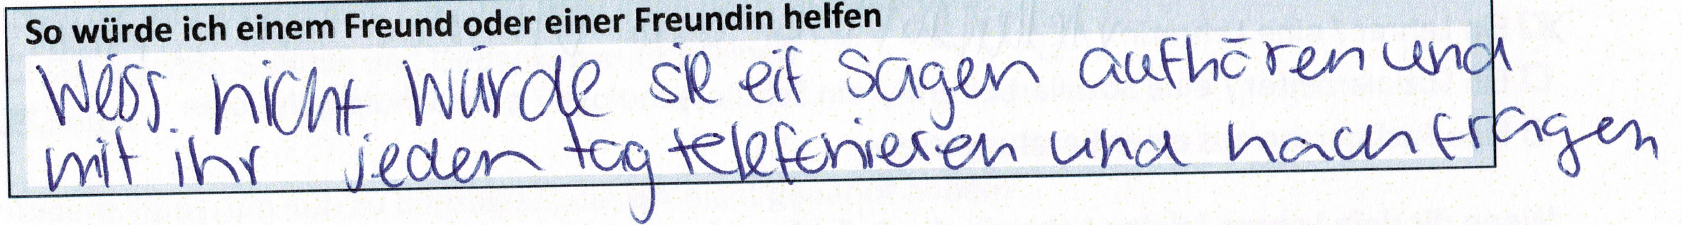 So würde ich einem Freund oder einer Freundin helfen
Weiss nicht würde sie eif sagen aufhören und
mit ihr jeden tag telefonieren und nachfragen